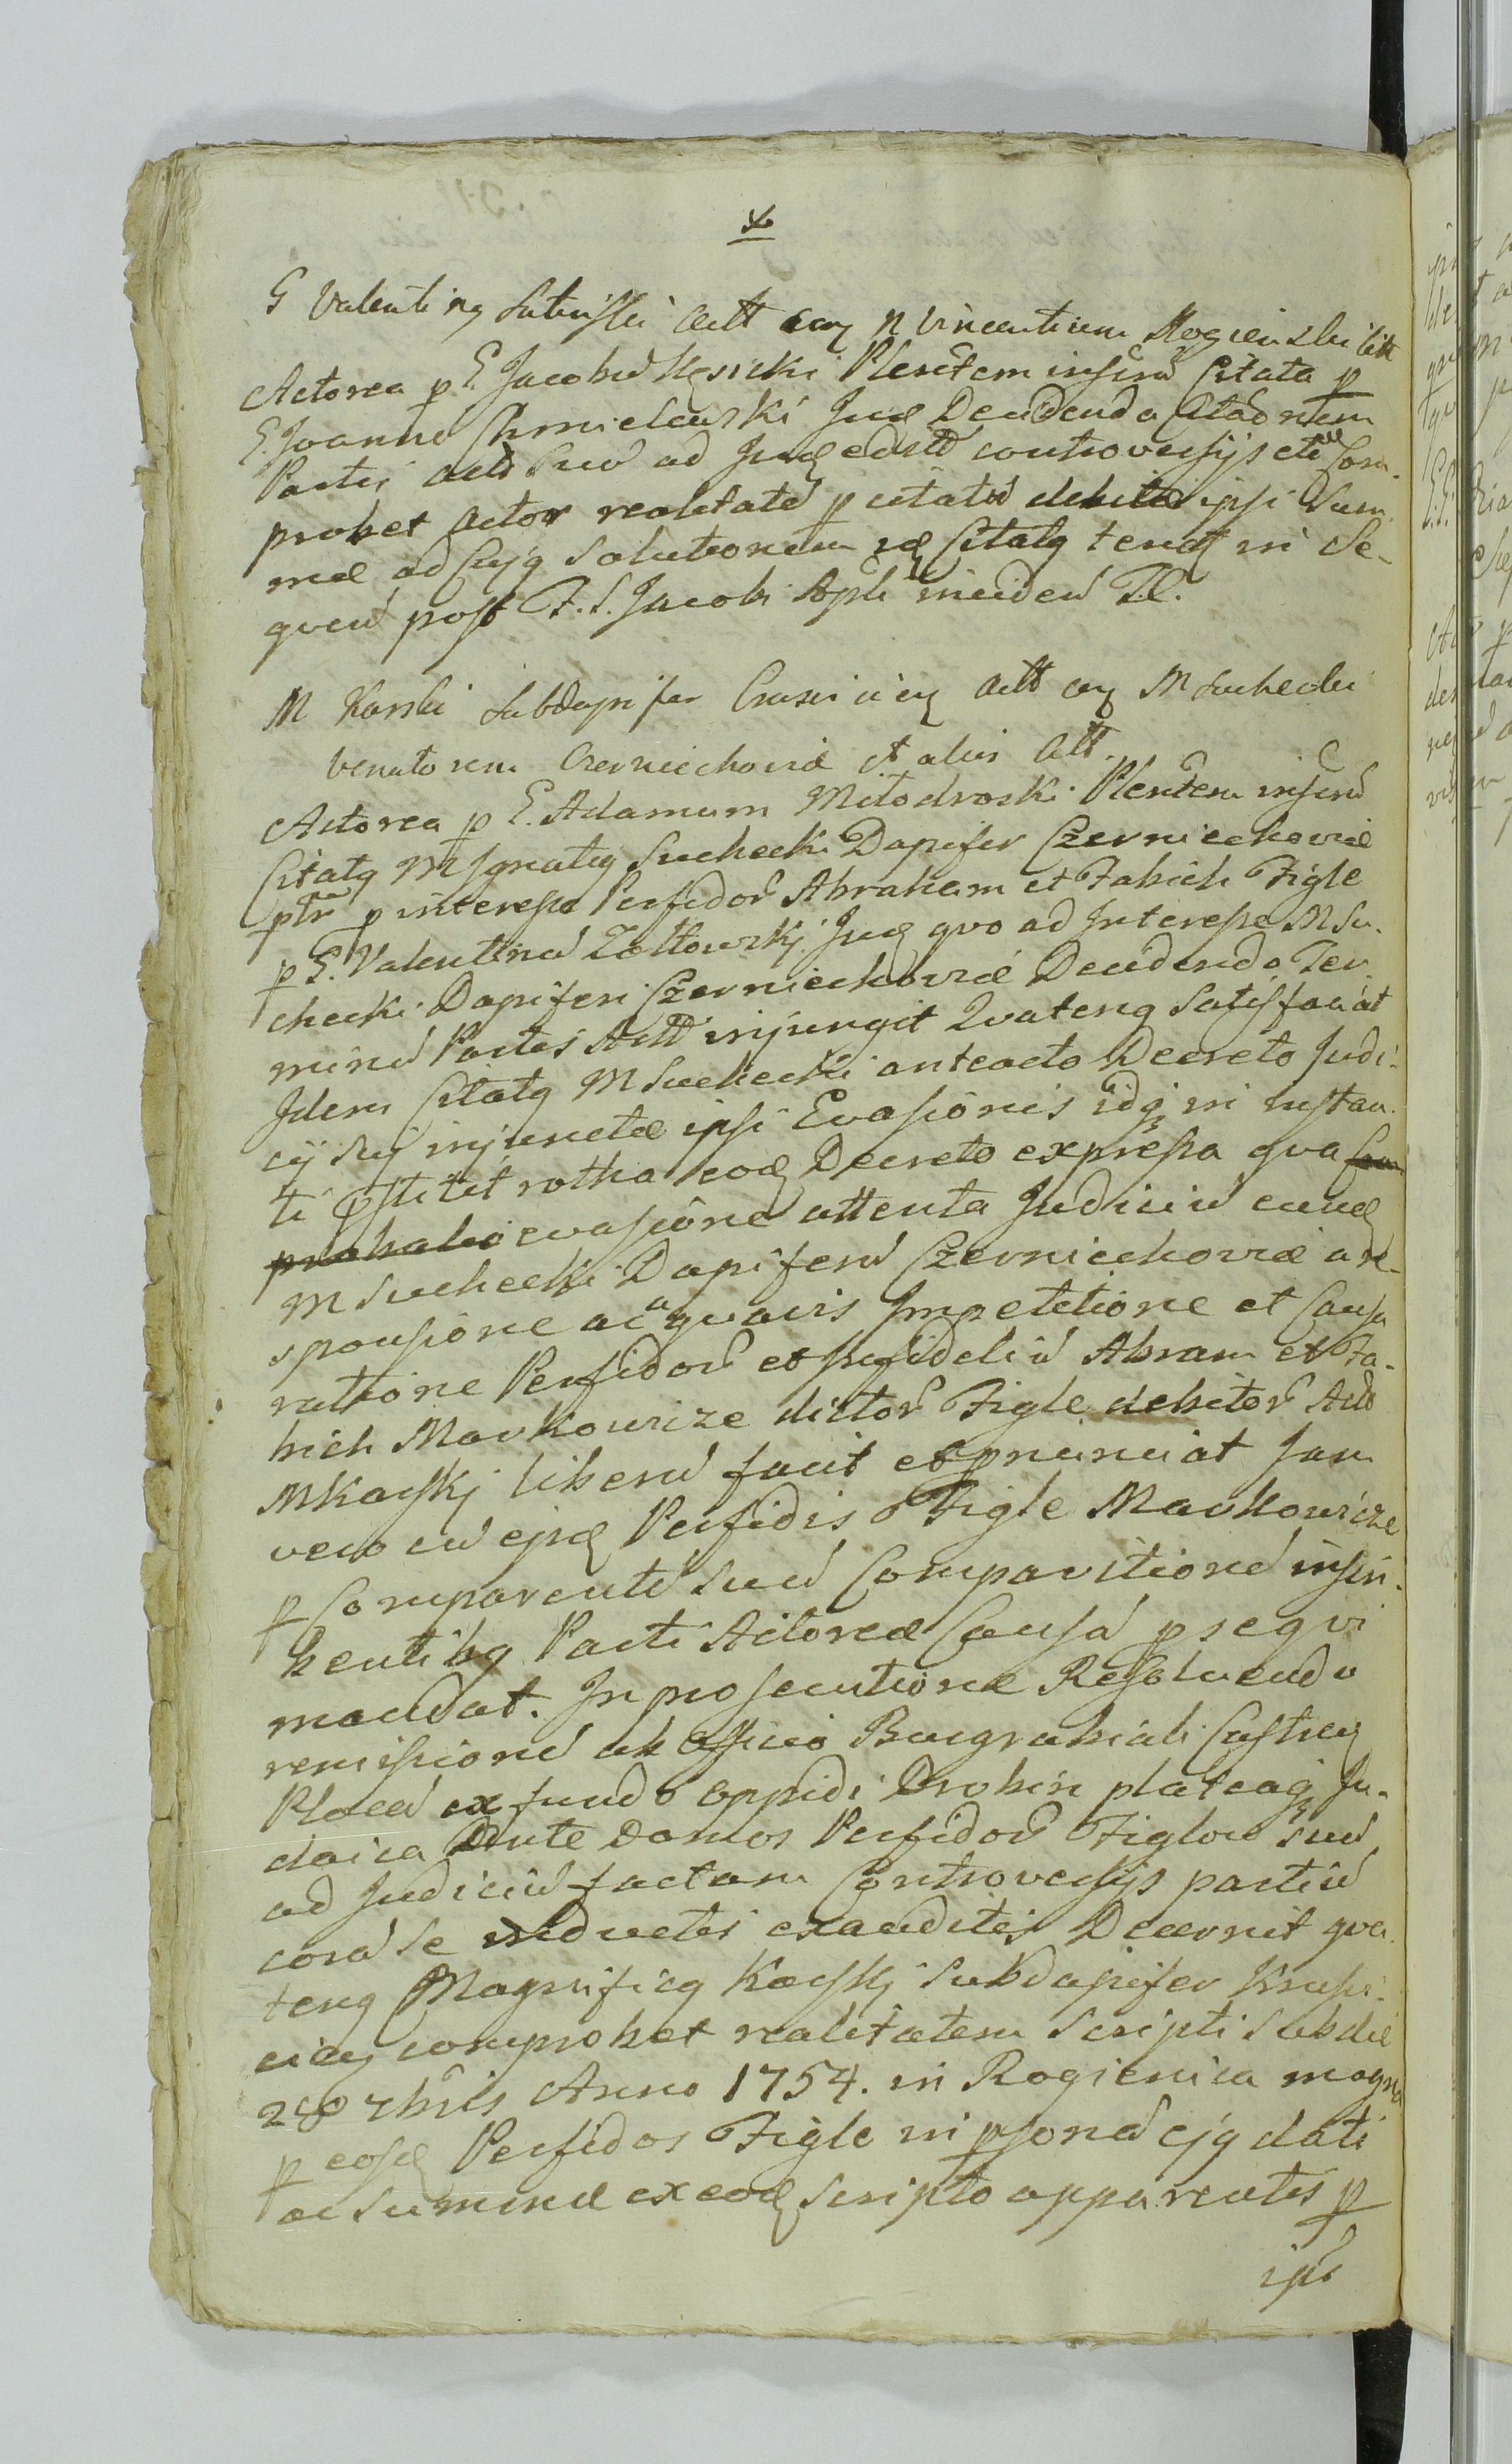 G Valenting Act cum N Vincentium Rogienski Citt
Actorea p E. Jacobū Kęsicki Plentem inferū Citata p
E. Joanne Chmielewski Jud Decidendo Citaōnem
Partis Act Suū ad Jud edit controversijs etc Com-
probet Actor realitatē p citatū debitæ ipsi Sum-
mæ ad cujg Solutionem id Citatg tenet in Se-
quen post F. S. Jacobi Apli inciden T.C.
M Karski Subdapifer Crusvicien Act cum M Suchecki
Venatorem Czerniechoviæ et alios Citt.
Actorea p E. Adamum Miłodroski Plentem inferū
Citatg M Ignatig Suchecki Dapifer Czerniechoviæ
ptr p interesse Perfidor Abraham et Fabich Figle
p E. Valentinū Zołtowskj Jud quo ad Interesse M Su-
checki Dapiferi Czerniechoviæ Decidendo Ter-
minū Partes Act injungit Quateng Satisfaciat
Idem Citatg M Suchecki anteacto Decreto Judi-
cij Sui injunctæ ipsi Evasionis idq in instan-
ti rotha eod Decreto expressa qua
evasione attenta Judiciū eund
M Suchecki Dapiferū Czerniechoviæ a re-
sponsione ac a quavis Impetitione et Causa
rattione Perfidor et Infideliū Abram et Fa-
bich Markowicze dictor Figle debitor Act
M Karskj liberū facit et pnunciat Jam
vero cū ejsd Perfidis Figle Markowicze
p Comparentē Suū Comparitionē inscri-
bentibg Parti Actoreæ Causā psequi
mandat. In prosecutione Resolvendo
remissionē ab Officio Burgrabiali Castren
Plocen ex fundo oppidi Drobin plateaq Ju-
daica Ante Domos Perfidor Figlow Suū
ad Judiciū factam Controversijs partiū
corā Se inductis exauditis Decernit qua-
teng Magnificg Karskj Subdapifer Krusvi-
cien comprobet realitatem Scripti Sub die
28 7bris Anno 1754. in Rogienica magna
p eosd Perfidos Figle in psonā ejg dati
ac Summæ ex eod Scripto apparentis p
ips